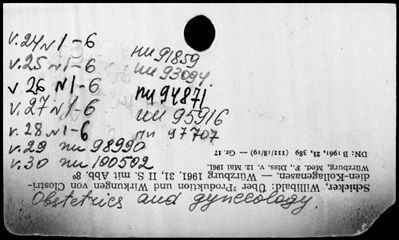 v.24 N1-6 nu 91859
v.25 N1-6 nu 93094
v 26 N1-6 nu 94871
v.27 N1-6 nu 95916
v.28 N1-6 nu 97707
v.29 nu 98990
v.30 nu 100502
Obstetrics and gynecology.
Schicker, Willibald: Über "Produktion und Wirkungen von Clostri-
dien-Kollagenasen. — Würzburg 1961, 31, II S. mit Abb. 8°
Würzburg, Med. F., Diss. v. 12. Mai 1961.
DN: B 1961, 21, 389 (III/18/19) — Gr. 17